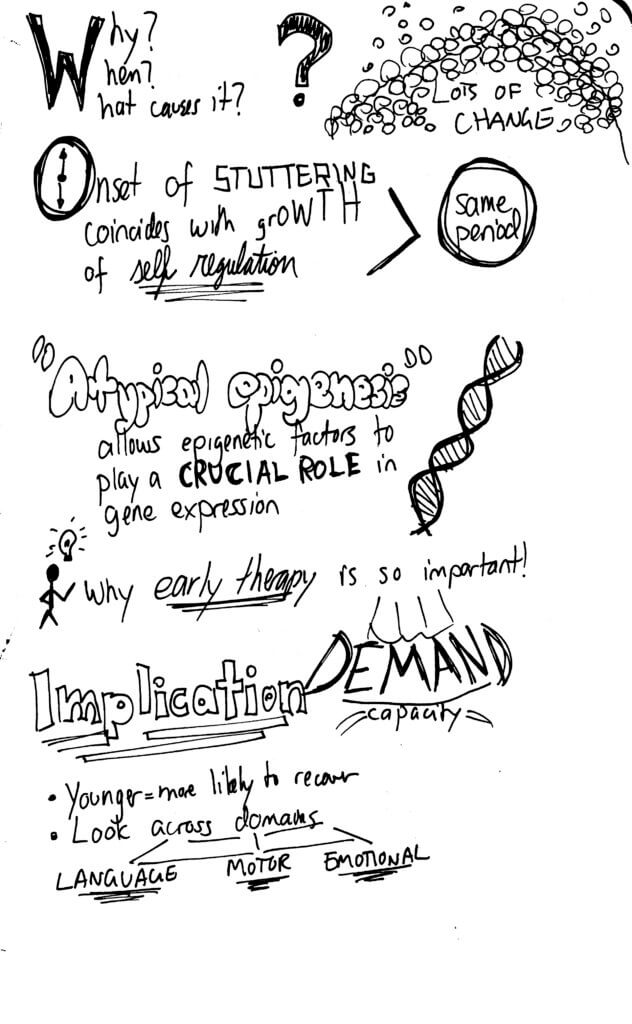 Why?
When?
What causes it?
?
LOTS OF
CHANGE
Onset of STUTTERING
coincides with groWTH
of self regulation
same
period
"Atypical epigenesis"
allows epigenetic factors to
play a CRUCIAL ROLE in
gene expression
Why early therapy is so important!
Implication
DEMAND
capacity
• Younger = more likely to recover
• Look across domains
LANGUAGE MOTOR EMOTIONAL